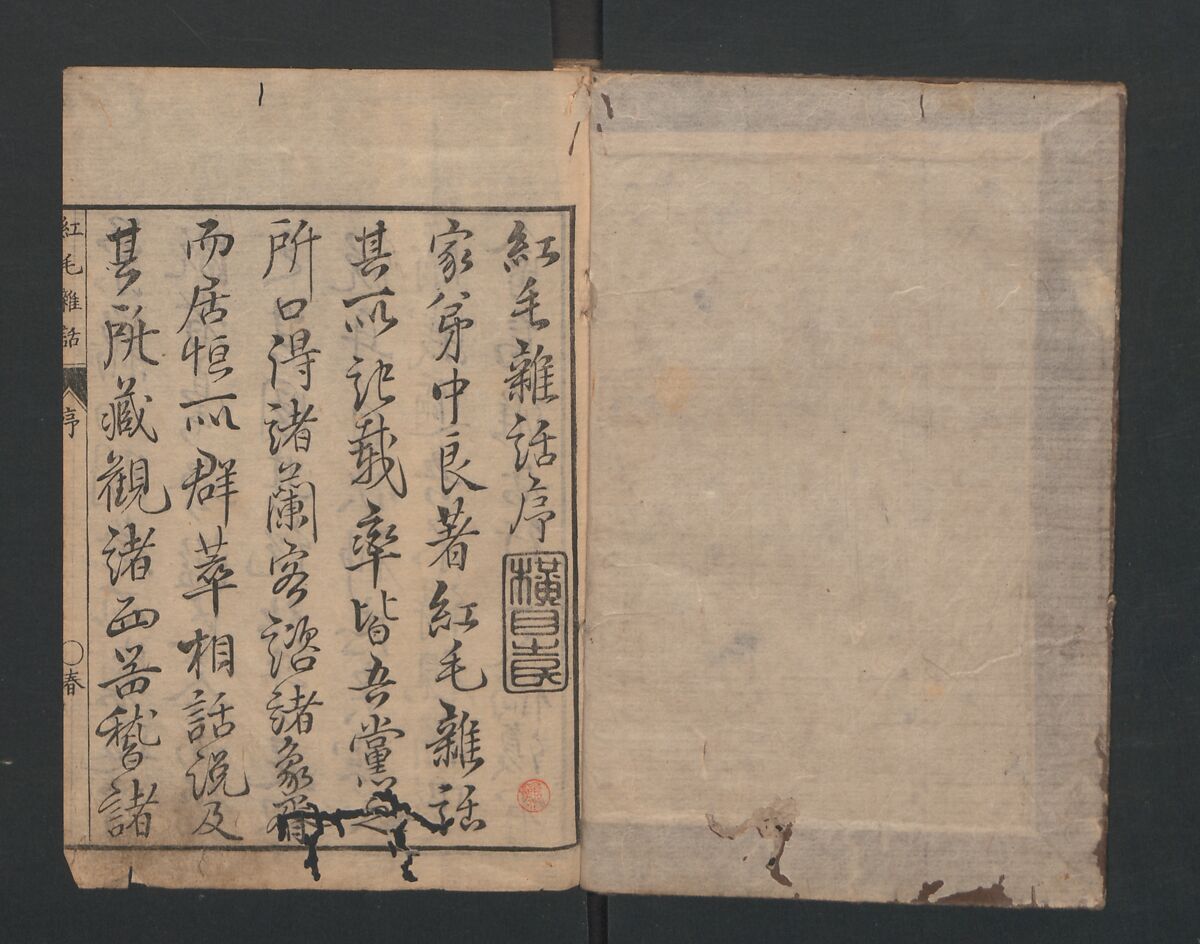 紅毛雜話序
家弟中良著紅毛雜話
其所記載率皆吾黨之
所口得諸蘭客諮諸象胥
而居恒所群萃相話說及
其所藏觀諸西器稽諸
紅毛雜話 序 ○春